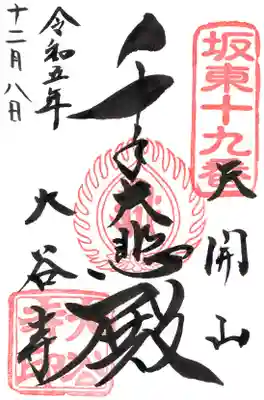 坂東十九番
天開山
千手大悲殿
大谷寺
令和五年
十二月八日